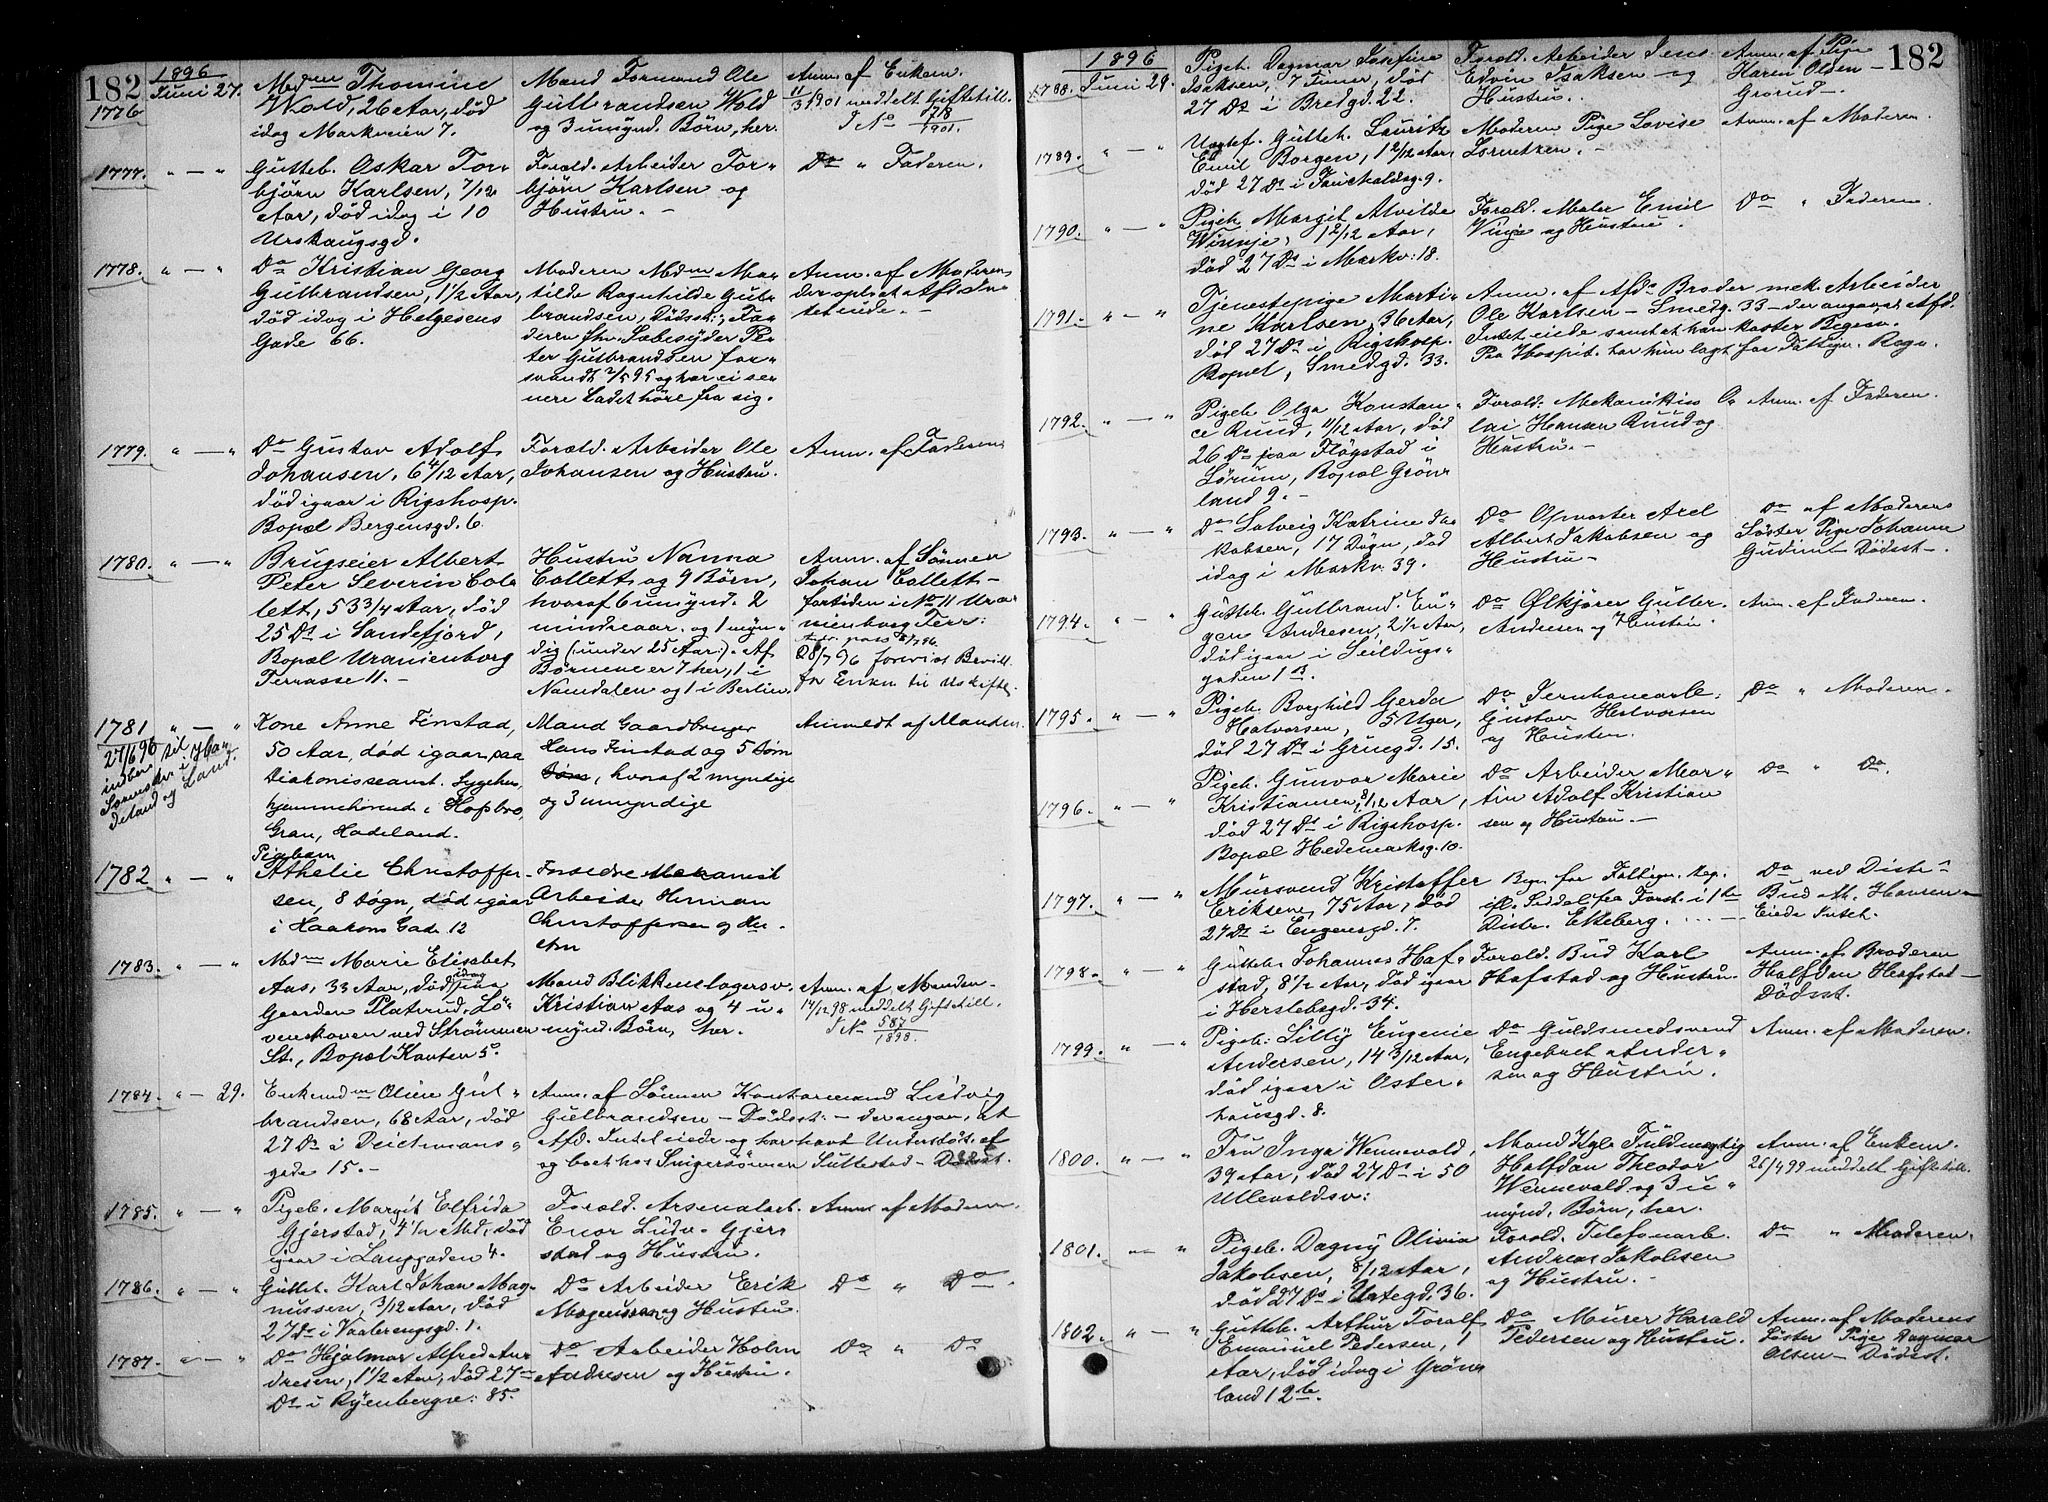 182
1896
Juni 27.
1776
Mdm Thomine
Wold, 26 Aar, død
idag Markveien 7.
Mand Formand Ole
Gulbrandsen Wold
og 3 umynd. Børn, her.
Anm. af Enken.
11/3 1901 meddelt Giftetill.
J No 578/1901.
1777. " — "
Gutteb. Oskar Tor-
björn Karlsen, 7/12
Aar, død idag i 10
Urskougsgd.
Foræld. Arbeider Tor-
bjørn Karlsen og
Hustru. —
Do " Faderen.
1778. " — "
Do Kristian Georg
Gulbrandsen, 1 1/2 Aar,
død idag i Helgesens
Gade 66.
Moderen Mdm Ma-
tilde Ragnhilde Gul-
brandsen, Dødsst.; Fa-
deren fhv. Sæbesyder Pe-
ter Gulbrandsen for-
svandt 2/5 95 og har ei se-
nere ladet høre fra sig.
Anm. af Moderen
der oplyst at Afd. In-
tet eiede. —
1779. " — "
Do Gustav Adolf
Johansen, 6 4/12 Aar,
død igaar i Rigshosp.
Bopæl Bergensgd. 6.
Foræld. Arbeider Ole
Johansen og Hustru.
Anm. af Faderen
1780. " — "
Brugseier Albert
Peter Severin Col-
lett, 53 3/4 Aar, død
25 Ds i Sandefjord,
Bopæl Uranienborg
Terrasse 11. —
Hustru Nanna
Collett og 9 Børn,
hvoraf 6 umynd. 2
mindreaar. og 1 myn-
dig (under 25 Aar). Af
Børnene er 7 her, 1 i
Namdalen og 1 i Berlin.
Anm. af Sønnen
Johan Collett —
fortiden i No 11 Ura-
nienborg Terr:
28/7 96 forevist Bevill.
for Enken til Uskifte.
1781 " — "
27/6 96
indber. til
Sorenskr. i Ha-
deland og Land.
Kone Anne Finstad,
50 Aar, død igaar paa
Diakonisseanst. Sygehus,
hjemmehørende i Hofsbro,
Gran, Hadeland.
Mand Gaardbruger
Hans Finstad og 5 Børn
, hvoraf 2 myndige
og 3 umyndige
Anmeldt af Manden.
1782 " — "
Pigebarn
Athelie Christoffer-
sen, 8 Døgn, død igaar
i Haakons Gade 12
Forældre
Arbeider Herman
Christoffersen og Hu-
stru
1783. " — "
Mdm Marie Elisabet
Aas, 33 Aar, død idag paa
Gaarden Platerud, Lö-
venskoven ved Strømmen
St., Bopæl Kanten 5.
Mand Blikkenslagersv.
Kristian Aas og 4 u-
mynd. Børn, her.
Anm. af Manden
14/12 98 meddelt Giftetill.
J No 587/1898.
1784. " — 29.
Enkemdm Oline Gul-
brandsen, 68 Aar, død
27 Ds i Deichmans-
gade 15. —
Anm. af Sønnen Kontormand Ludvig
Gulbrandsen — Dødsst. — der angav, at
Afd. Intet eiede og har havt Understøt. af
og boet hos Svigersønnen Sullestad — Dødsst.
1785. " — "
Pigeb. Margit Elfrida
Gjerstad, 4 1/2 Md, død
igaar i Langgaden 4.
Foræld. Arsenalarb.
Enor Ludv. Gjer-
stad og Hustru.
Anm. af Moderen.
1786. " — "
Gutteb. Karl Johan Mag-
nussen, 3/12 Aar, død
27 Ds i Vaalerengsgd. 1.
Do Arbeider Erik
Magnussen og Hustru.
Do " Do.
1787. " — "
Do Hjalmar Alfred An-
dresen, 1 1/2 Aar, død 27
Ds i Ryenbergv: 85.
Do Arbeider Holm
Andresen og Hustru.
Do " Do
182
1896
1788. Juni 29.
Pigeb. Dagmar Josefine
Isaksen, 7 Timer, død
27 Ds i Bredgd. 22.
Foræld. Arbeider Jens
Edvin Isaksen og
Hustru.
Anm. af Pige
Karen Olsen
Grorud —
1789. " — "
Uægtef. Gutteb. Lauritz
Emil Borgen, 1 2/12 Aar,
død 27 Ds i
Moderen Pige Lovise
Lorentzen. —
Anm. af Moderen.
1790. " — "
Pigeb. Margit Alvilde
Winnje, 1 2/12 Aar,
død 27 Ds i Markv: 18.
Foræld. Maler Emil
og Hustru.
Do " Faderen.
1791. " — "
Tjenestepige Marti-
ne Karlsen, 36 Aar,
død 27 Ds i Rigshosp.
Bopæl, Smedgd. 33.
Anm. af Afds Broder mek. Arbeider
Ole Karlsen — Smedg. 33 — der angav, at Afd.
Intet eiede samt at han koster Begrav.
Paa Hospit. har hun lagt for Fattigv. Regn.
1792. " — "
Pigeb. Olga Konstan-
ce Ruud, 11/12 Aar, død
26 Ds paa Fløgstad i
Sørum, Bopæl Grøn-
land 9. —
Foræld. Mekanikus
lai Hansen Ruud og
Hustru. —
Anm. af Faderen.
1793. " — "
Do Solveig Katrine Ja-
kobsen, 17 Døgn, død
idag i Markv: 39.
Do Opvarter Axel
Albert Jakobsen og
Hustru —
Do af Moderens
Søster Pige Johanne
Dødsst —.
1794. " — "
Gutteb. Gulbrand Eu-
gen Andresen, 2 1/2 Aar,
død igaar i Seildugs-
gaden 1 B.
Do Ølkjører
Andresen og Hustru.
Anm. af Faderen.
1795. " — "
Pigeb. Borghild Gerda
Halvorsen, 5 Uger,
død 27 Ds i Gruegd. 15.
Do Jernbanearb:
Gustav Halvorsen
og Hustru.
Do " Moderen.
1796. " — "
Pigeb. Gunvor Marie
Kristiansen, 8/12 Aar,
død 27 Ds i Rigshosp.
Bopæl Hedemarksg. 10.
Do Arbeider Mar-
tin Adolf Kristian-
sen og Hustru. —
Do " Do.
1797. " — "
Mursvend Kristoffer
Eriksen, 75 Aar, død
27 Ds i Engensgd. 7.
Begr. for Fattigv. Regn.
ifl. Seddel fra Forst. i 1ste
Distr. Ekeberg. —
Do ved Distr.
Bud Hansen —
Eiede Intet.
1798. " — "
Gutteb. Johannes Haf-
stad, 8 1/2 Aar, død igaar
i Herslebsgd. 34.
Foræld. Bud Karl
Hafstad og Hustru.
Anm. af Broderen
Halfdan Hafstad —
Dødsst.
1799. " — "
Pigeb. Lilly Eugenie
Andersen, 14 3/12 Aar,
død igaar i Oster-
hausgd. 8.
Do Guldsmedsvend
Engebret Ander-
sen og Hustru.
Anm. af Moderen.
1800. " — "
Fru Inga Wennevold,
39 Aar, død 27 Ds i 50
Ullevoldsv:
Mand Kgl. Fuldmægtig
Halfdan Theodor
Wennevold og 3 u-
mynd. Børn, her.
Anm. af Enkem.
26/4 99 meddelt Giftetill.
1801. " — "
Pigeb. Dagny Olivia
Jakobsen, 8/12 Aar,
død 27 Ds i Urtegd. 36.
Foræld. Telefonarb.
Andreas Jakobsen
og Hustru. —
Do " Moderen.
1802. " — "
Gutteb. Arthur Toralf
Emanuel Pedersen, 1
Aar, død idag i Grøn-
land 12 b.
Do Murer Harald
Pedersen og Hustru.
Anm. af Moderens
Søster Pige Dagmar
Olsen — Dødsst.